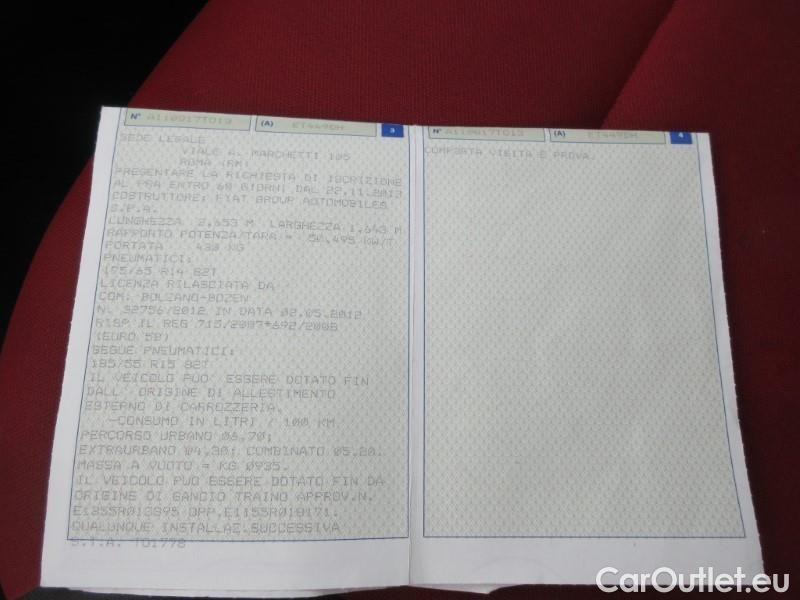 N° A110917TO13 (A) ET449DM 3
SEDE LEGALE
VIALE A. MARCHETTI 105
ROMA (RM)
PRESENTARE LA RICHIESTA DI ISCRIZIONE
AL PRA ENTRO 60 GIORNI DAL 22.11.2013
COSTRUTTORE: FIAT GROUP AUTOMOBILES
S.P.A.
LUNGHEZZA 3,653 M LARGHEZZA 1,643 M
RAPPORTO POTENZA/TARA = 50,495 KW/T
PORTATA 430 KG
PNEUMATICI:
175/65 R14 82T
LICENZA RILASCIATA DA
COM: BOLZANO-BOZEN
N. 32756/2012 IN DATA 02.05.2012
RISP IL REG 715/2007*692/2008
(EURO 5B)
SEGUE PNEUMATICI:
185/55 R15 82T
IL VEICOLO PUO' ESSERE DOTATO FIN
DALL' ORIGINE DI ALLESTIMENTO
ESTERNO DI CARROZZERIA.
-CONSUMO IN LITRI / 100 KM
PERCORSO URBANO 06,70;
EXTRAURBANO 04,30; COMBINATO 05,20.
MASSA A VUOTO = KG 0935.
IL VEICOLO PUO ESSERE DOTATO FIN DA
ORIGINE DI GANCIO TRAINO APPROV.N.
E1355R013895 OPP.E1155R018171.
QUALUNQUE INSTALLAZ.SUCCESSIVA
S.T.A. TO1778
N° A110917TO13 (A) ET449DM 4
COMPORTA VISITA E PROVA.
CarOutlet.eu